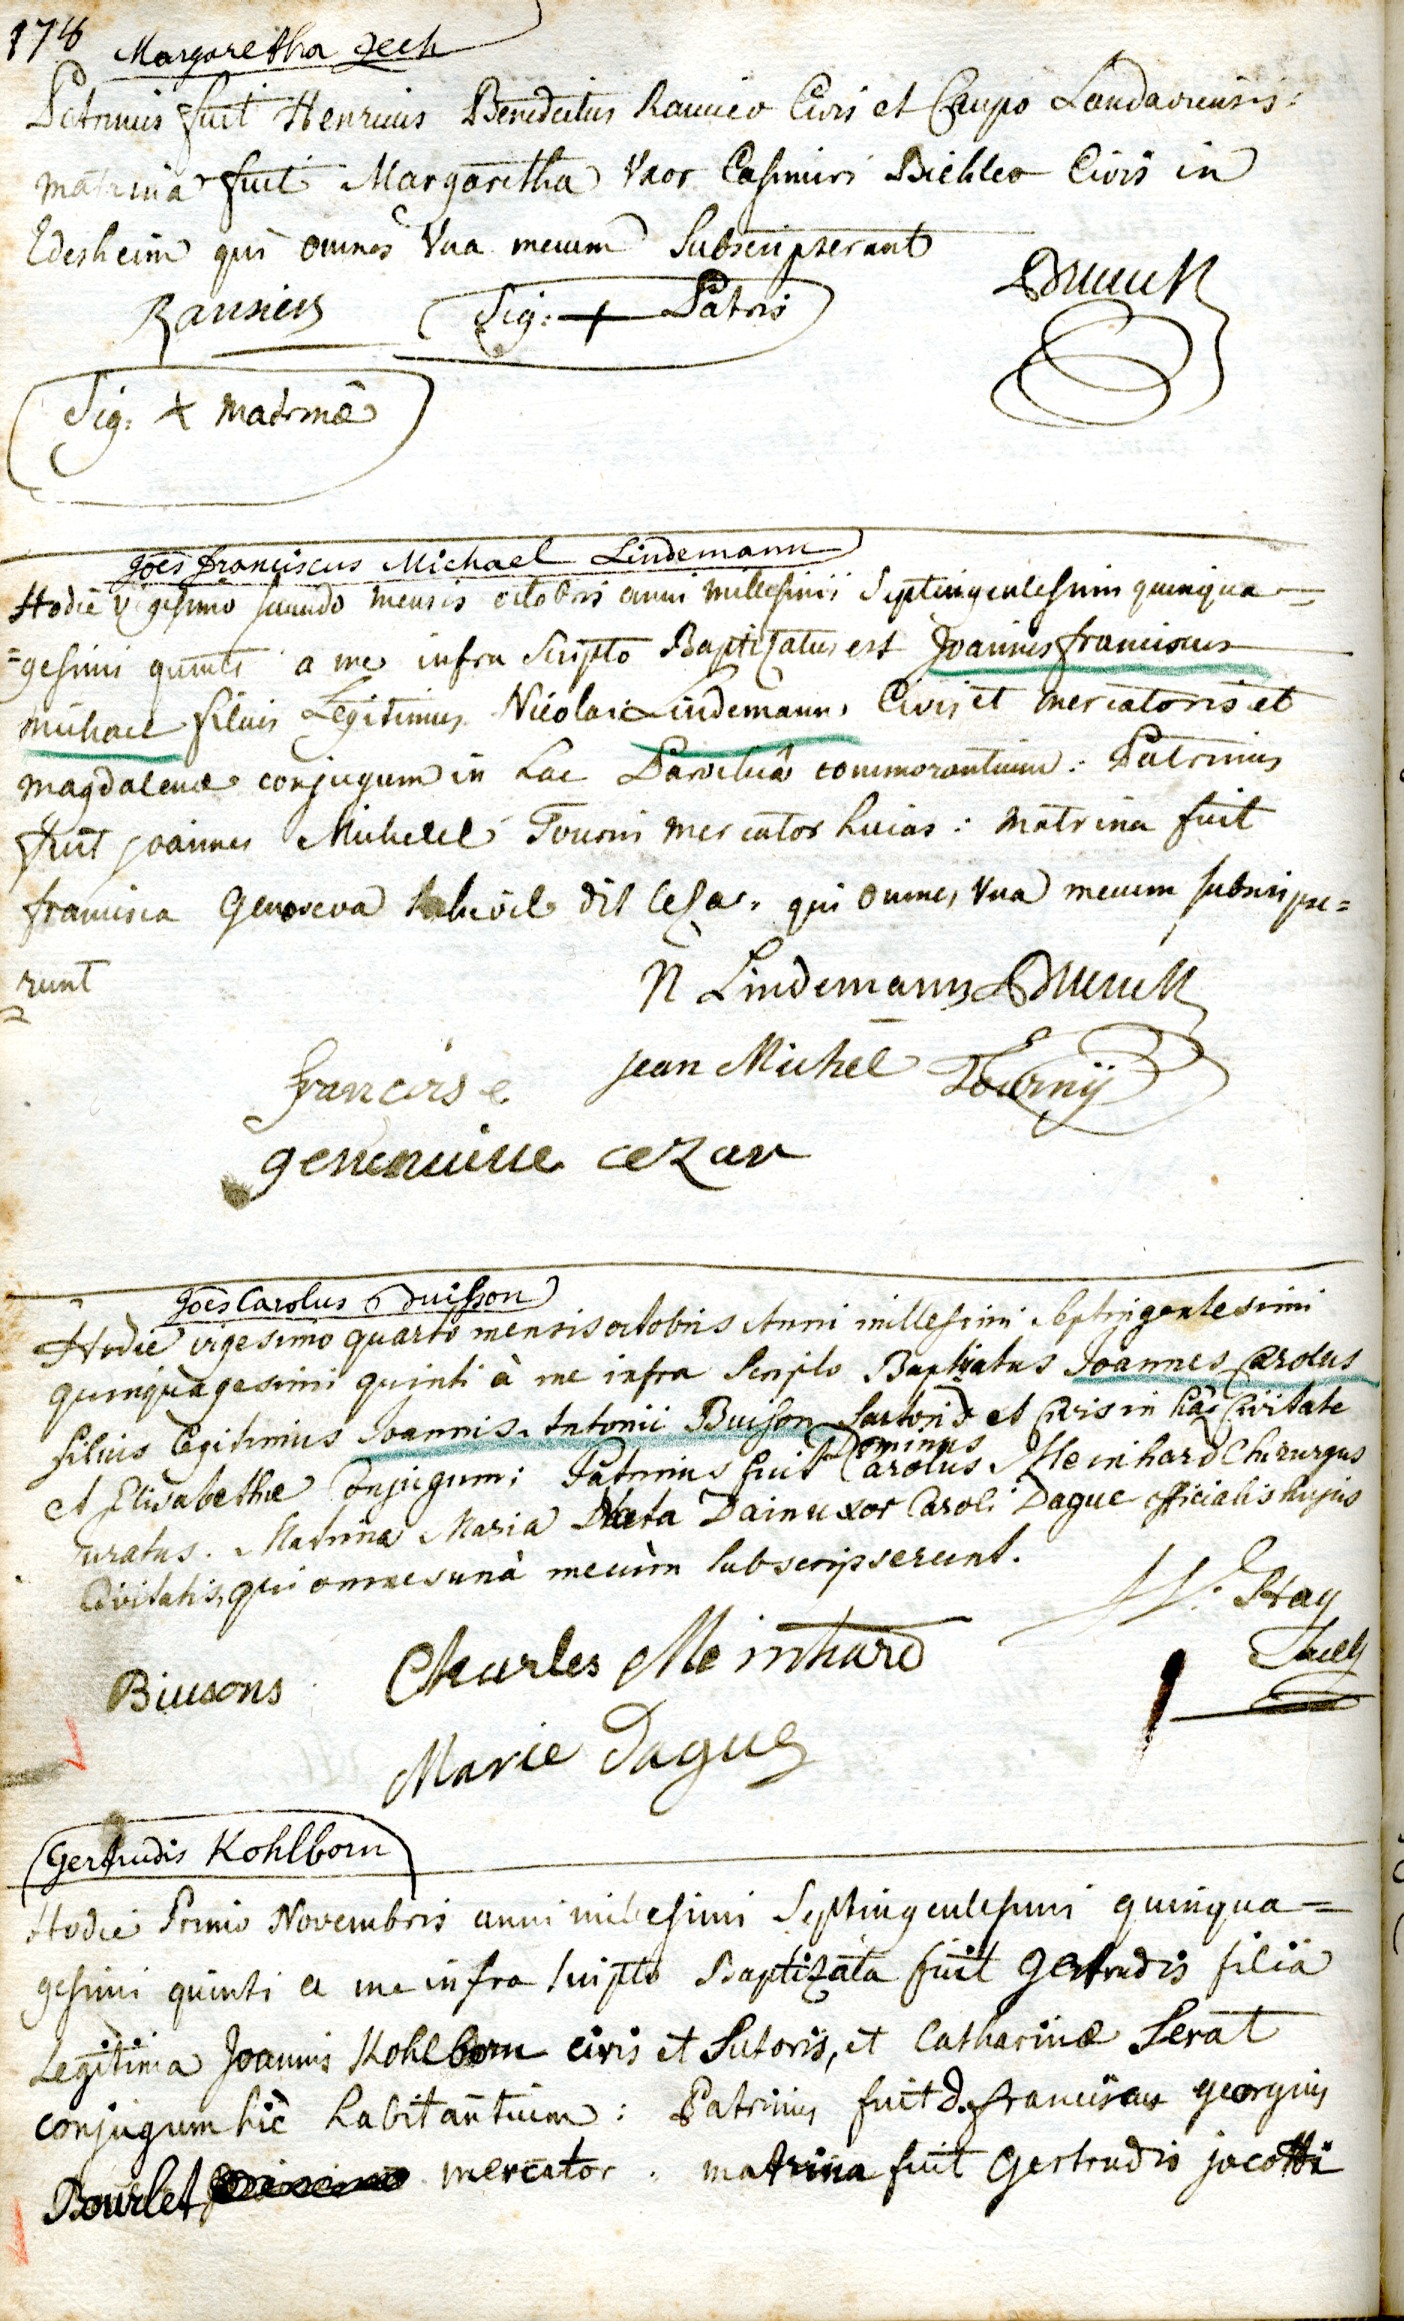 178 Margaretha Zech
Patrinus fuit Henricus Benedictus Civis et Caupo Landaviensis:
matrina fuit Margaretha Uxor Casimiri Biehler Civis in
Edesheim qui omnes Una mecum Subscripserunt
Sig: + Patris
Sig: + Matrinæ
Joẽs franciscus Michael Lindemann
Hodie vigesimo secundo mensis octobris anni millesimi Septingentesimi quinqua=
=gesimi quinti a me infra Scripto Baptizatus est Joannes franciscus
Michael filius Legitimus Nicolai Lindemann Civis et mercatoris et
Magdalenæ conjugum in hac Parochia commorantium: Patrinus
fuit joannes Michael Tourni mercator huias: matrina fuit
francisca Genoveva dit Cesar. qui Omnes Una mecum subscripse=
runt
N Lindemann
francoise jean Michel Tournÿ
cezar
Joẽs Carolus Buisson
Hodie vigesimo quarto mensis octobris Anni millesimi Septingentesimi
quinquagesimi quinti à me infra Scripto Baptizatus Joannes Carolus
filius legitimus Joannis Antonii Buisson Sartoris et Civis in hâc Civitate
et Elisabethæ Conjugum; Patrinus fuit Dominus Carolus Meinhard Chirurgus
juratus. Matrina Maria Dain uxor Caroli Dague officialis hujus
Civitatis, qui omnes unà mecùm subscripserunt.
Biusons Charles Meinhard
Marie Dague
Gertrudis Kohlborn
Hodie Primo Novembris anni millesimi Septingentesimi quinqua=
gesimi quinti a me infra scripto Baptizata fuit Gertrudis filia
Legitima Joannis Kohlborn civis et Sutoris, et Catharinæ Serat
conjugum hic habitantium: Patrinus fuit D. franciscus georgius
Bourlet mercator. matrina fuit Gertrudis jacobi